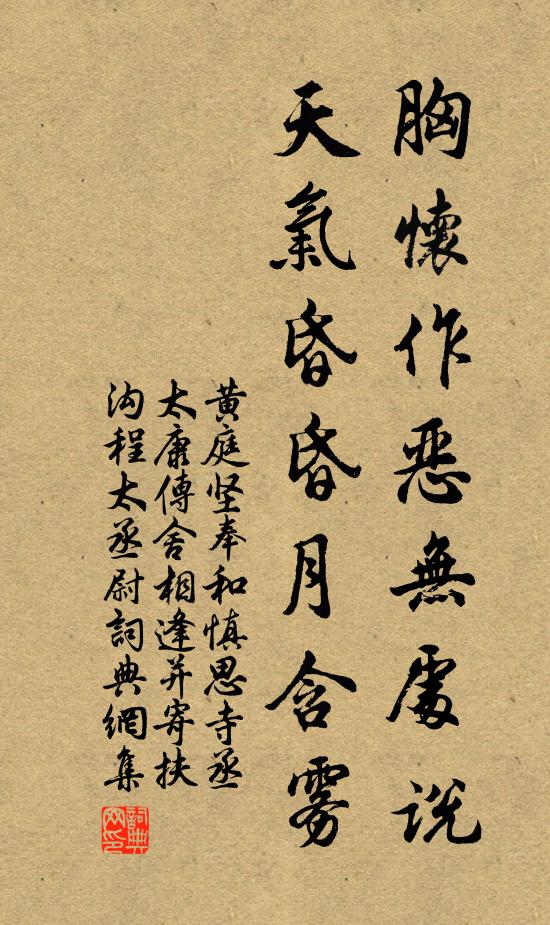 胸懷作惡無處說
天氣昏昏月含雾
黄庭坚奉和慎思寺丞
太康傳舍相逢并寄扶
沟程太丞尉詞典網集
詞典网印